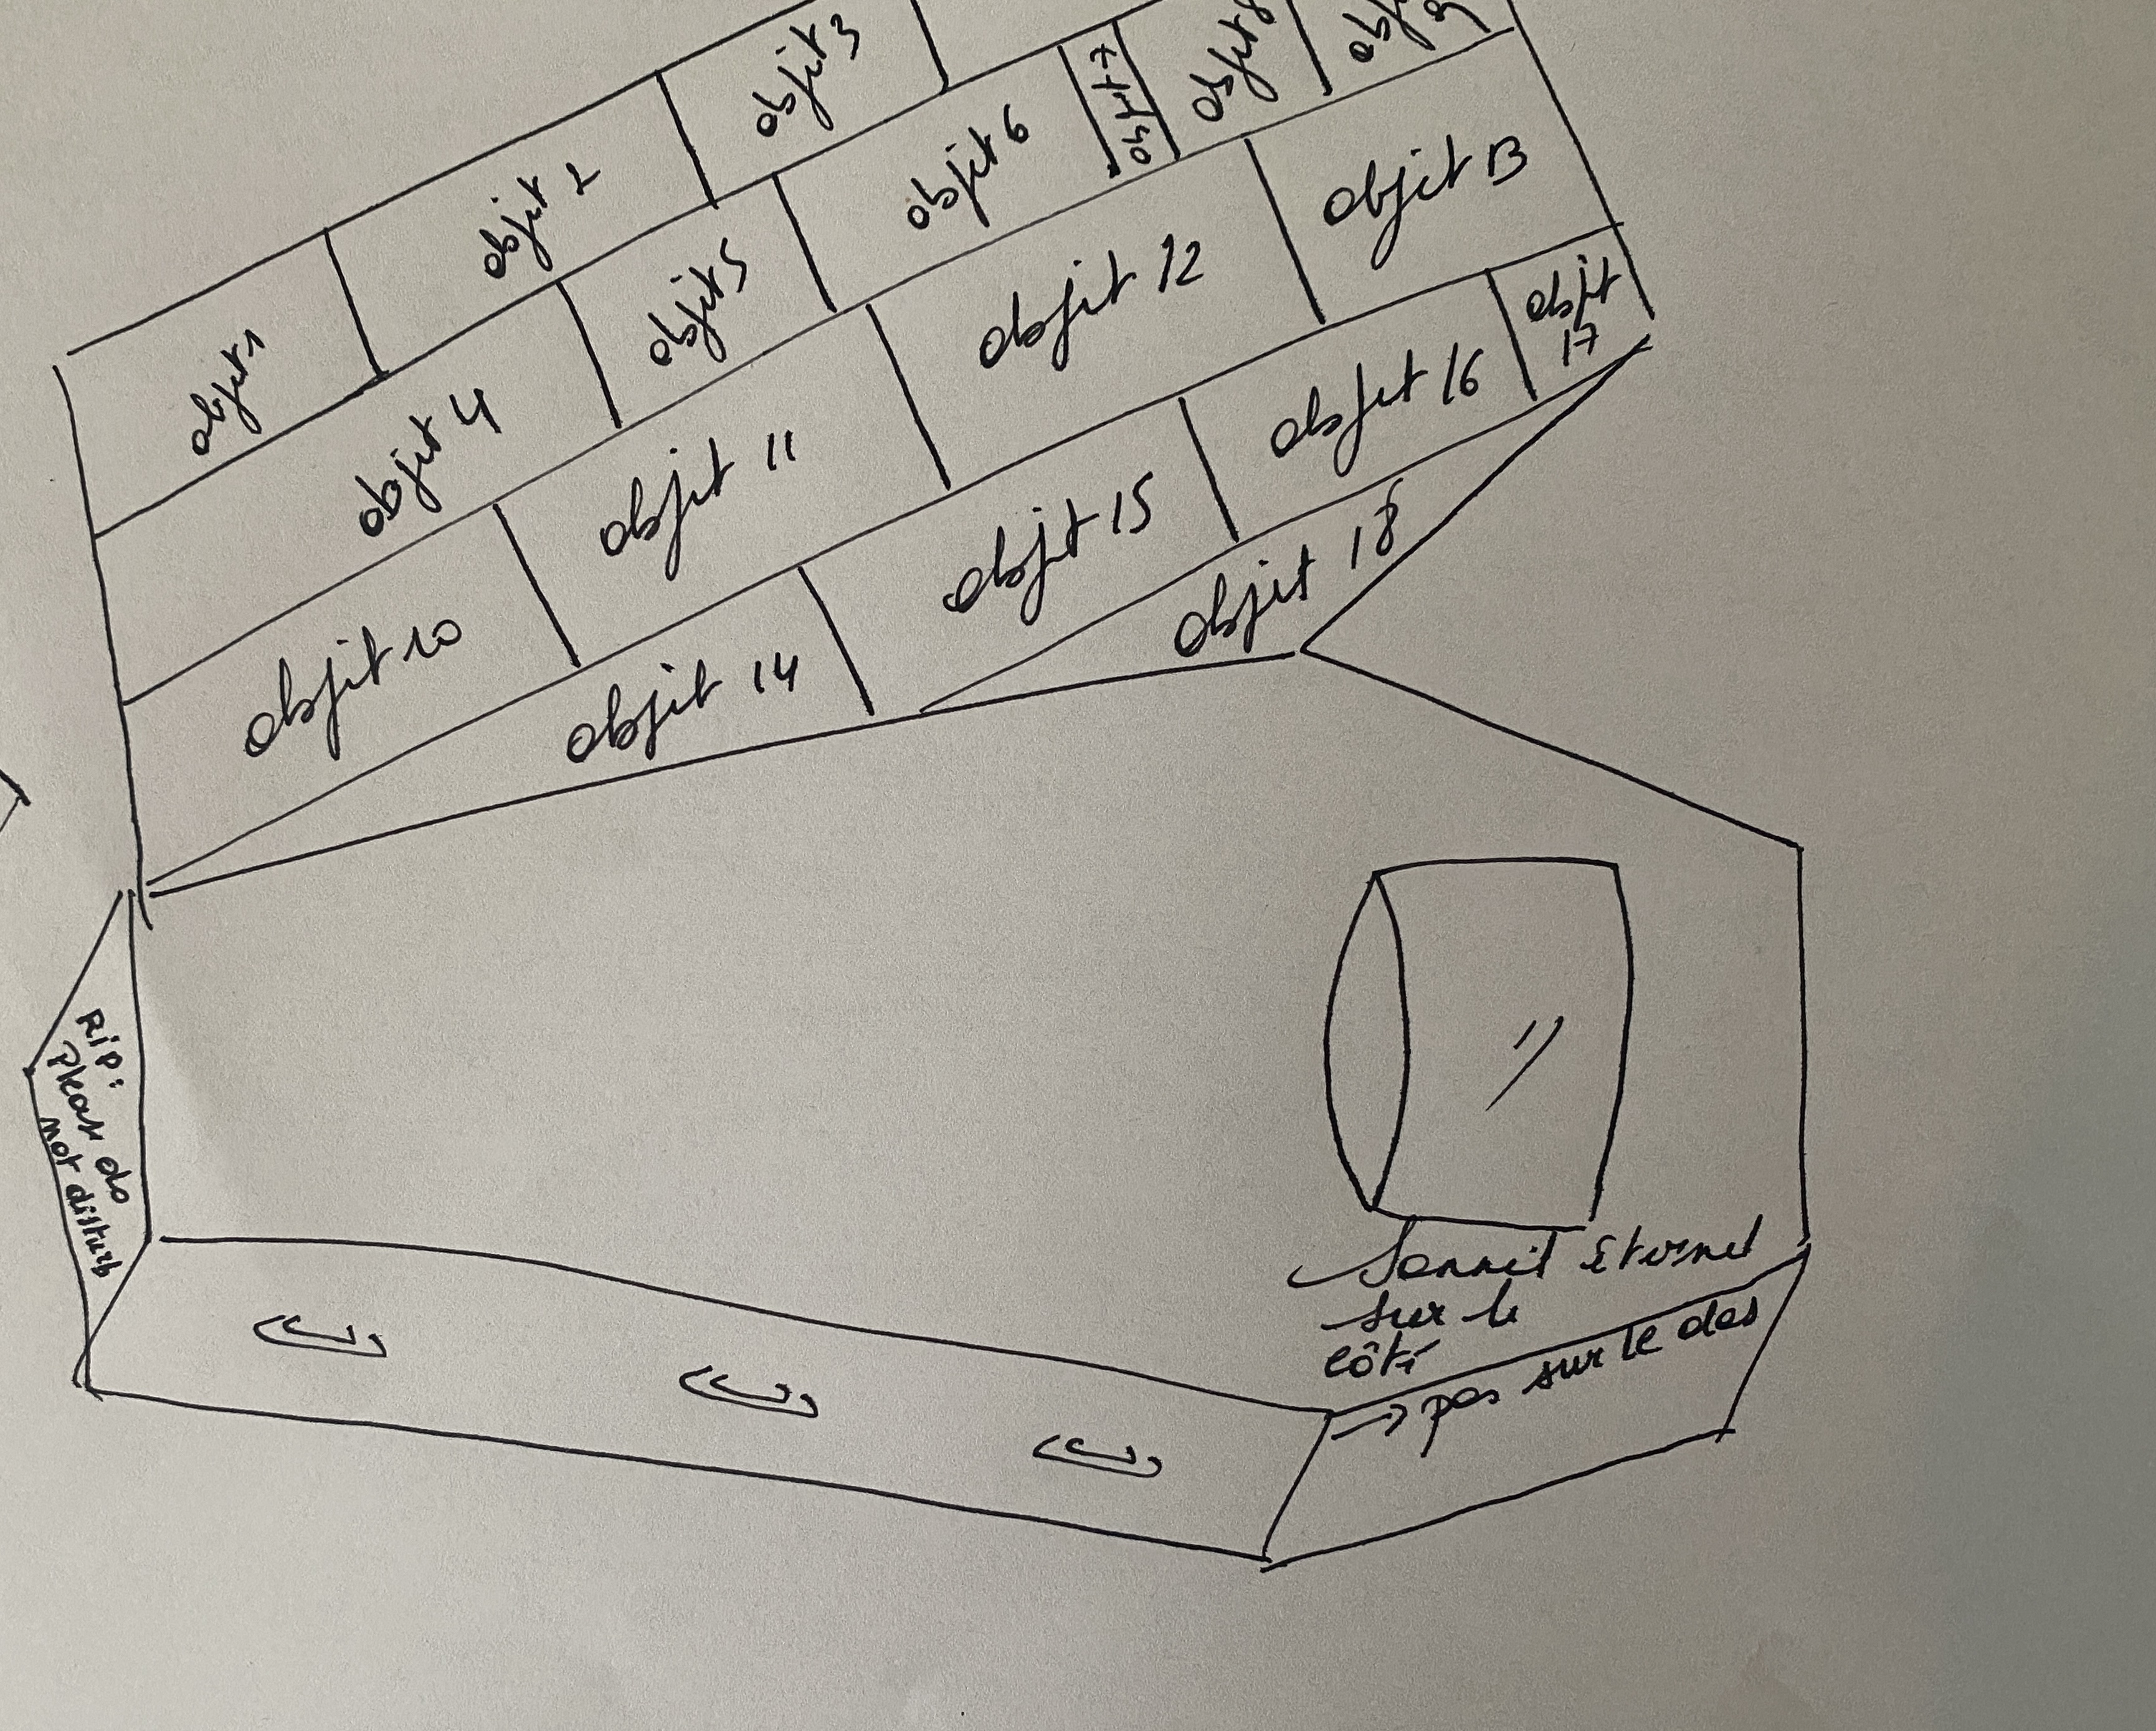 objet 1
objet 2
objet 3
objet 4
objet 5
objet 6
objet 7
objet 8
objet 9
objet 10
objet 11
objet 12
objet 13
objet 14
objet 15
objet 16
objet
17
objet 18
RIP:
Please do
not disturb
Sommeil éternel
sur le
côté
→ pas sur le dos